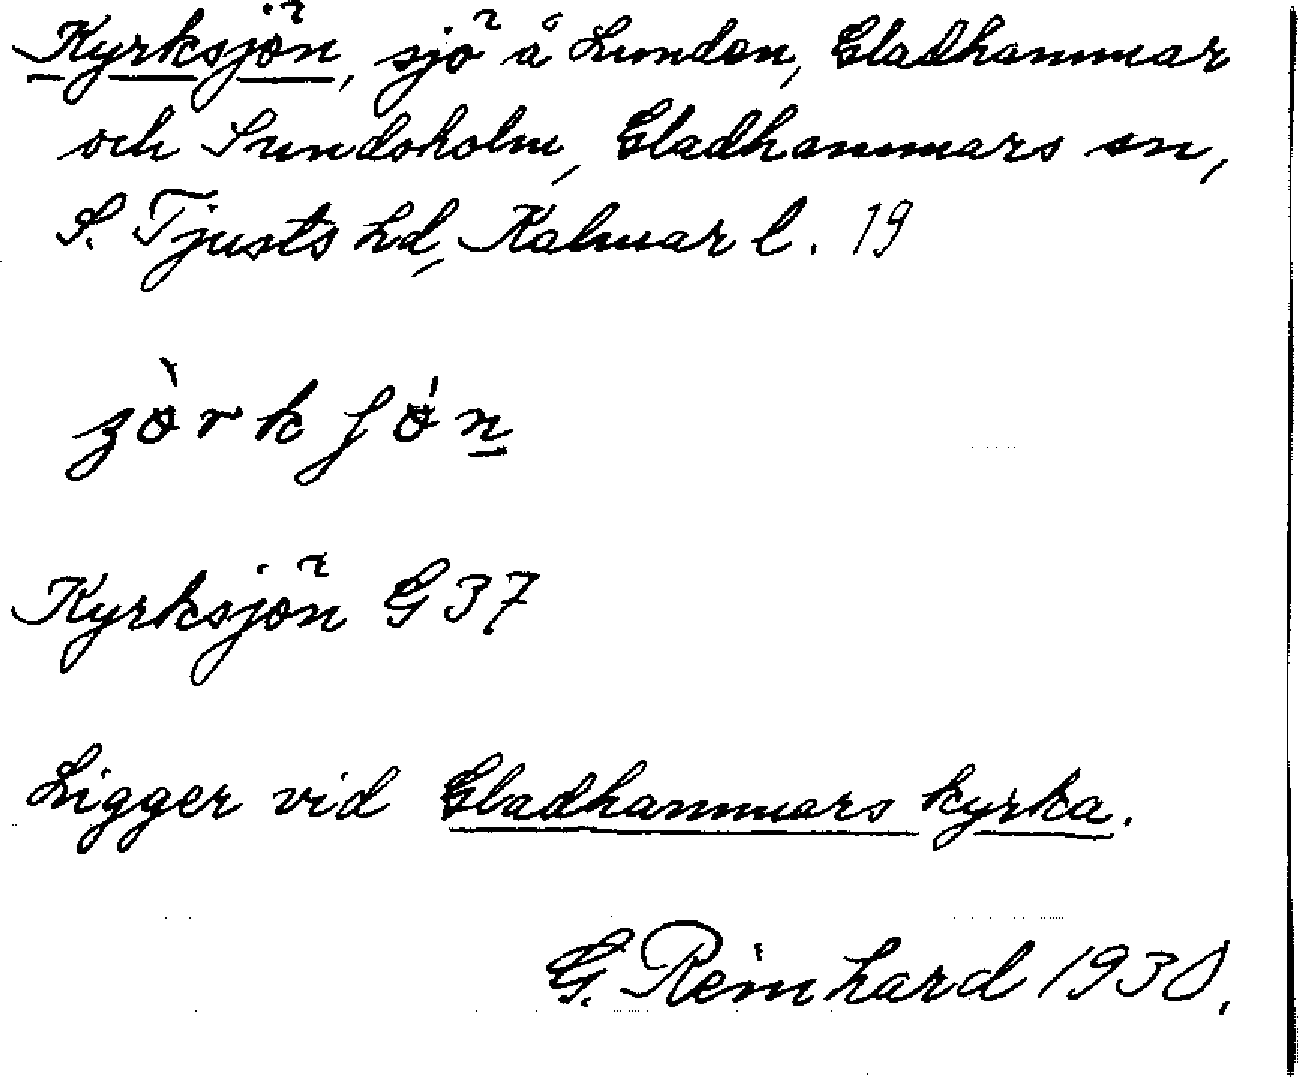 Kyrksjön, sjö å Lunden, Gladhammar
och Sundsholm, Gladhammars sn,
S. Tjusts hd, Kalmar l. 19
Kyrksjön G 37
Ligger vid Gladhammars kyrka.
G. Reinhard 1938.